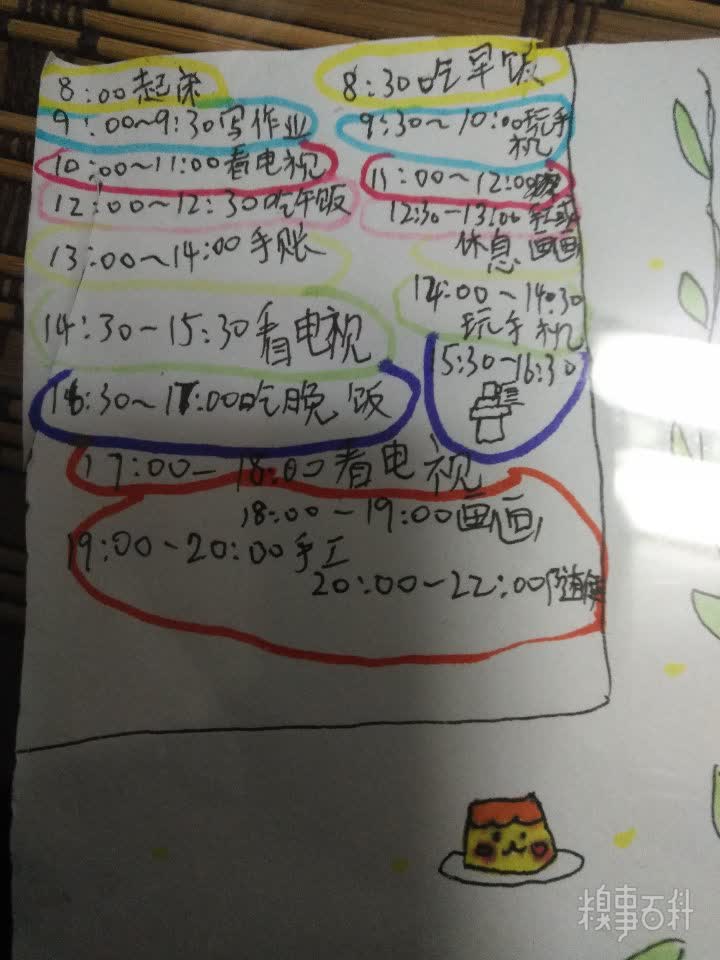 8:00起床
8:30吃早饭
9:00~9:30写作业
9:30~10:00玩手
机
10:00~11:00看电视
11:00~12:00
12:00~12:30吃午饭
12:30-13:00
休息 画画
13:00~14:00手账
14:00~14:30
玩手机
14:30~15:30看电视
15:30~16:30
16:30~17:00吃晚饭
17:00-18:00看电视
18:00-19:00画画
19:00-20:00手工
20:00~22:00随便
糗事百科